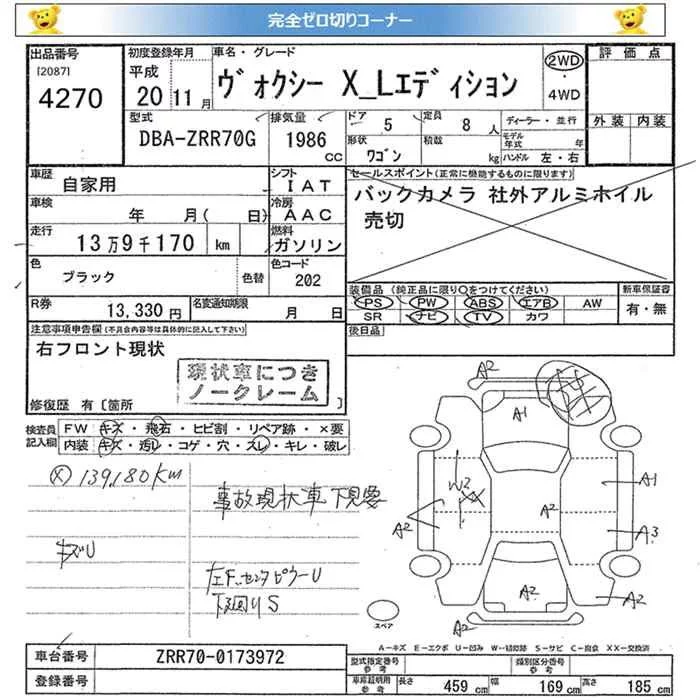 完全ゼロ切りコーナー
出品番号
[2087]
4270
初度登録年月
平成
20 11月
車名・グレード
ヴォクシー X_Lエディション
2WD
・
4WD
評価点
外装 内装
型式
DBA-ZRR70G
排気量
1986
CC
ドア 5
定員 8 人
形状 ワゴン
積載 kg
ディーラー・並行
モデル
年式 年
ハンドル 左・右
車歴
自家用
シフト
IAT
車検
年 月( 日)
冷房
AAC
走行
13万9千170 km
燃料
ガソリン
色
ブラック
色替
色コード
202
R券
13,330円
名変通知期限
月 日
セールスポイント(正常に機能するものに限ります)
バックカメラ 社外アルミホイル
売切
装備品 (純正品に限り○をつけてください)
PS PW ABS エアB AW
SR ナビ TV カワ
新車保証書
有・無
後日品
注意事項申告欄(不具合内容等は具体的に記入して下さい)
右フロント現状
現状車につき
ノークレーム
修復歴 有〔箇所 〕
検査員
記入欄
FW キズ・飛石・ヒビ割・リペア跡・×要
内装 キズ・汚レ・コゲ・穴・スレ・キレ・破レ
139,180Km
事故現状車 下見要
キズU
左F.センタピラーU
下廻りS
A2
A1
W2
XX
A2
A2
A1
A3
A2
A2
A2
スペア
A-キズ E-エクボ U-凹み W-補修跡 S-サビ C-腐食 XX-交換済
車台番号
ZRR70-0173972
登録番号
型式指定番号
参考
類別区分番号
参考
車庫証明用
参考
長さ 459 cm
幅 169 cm
高さ 185 cm